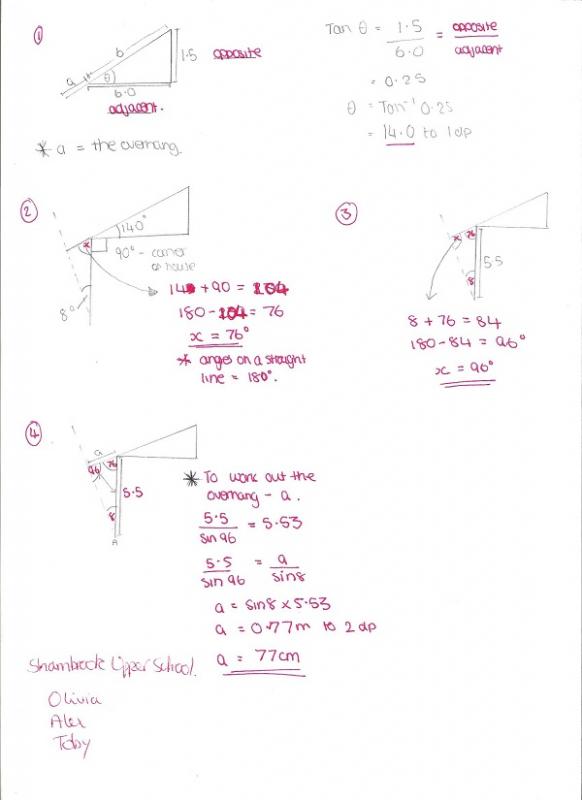 ①
b
a
θ
1.5 opposite
6.0
adjacent.
* a = the overhang.
Tan θ = 1.5 / 6.0 = opposite / adjacent
= 0.25
θ = Tan⁻¹ 0.25
= 14.0 to 1dp
②
140°
x
90° - corner
of house
8°
14 + 90 = 104
180 - 104 = 76
x = 76°
* anges on a straight
line = 180°.
③
x
76
5.5
8
8 + 76 = 84
180 - 84 = 96°
x = 96°
④
a
96
76
5.5
8
A
* To work out the
overhang - a.
5.5 / sin 96 = 5.53
5.5 / sin 96 = a / sin 8
a = sin 8 x 5.53
a = 0.77m to 2 dp
a = 77cm
Sharnbrook Upper School.
Olivia
Alex
Toby